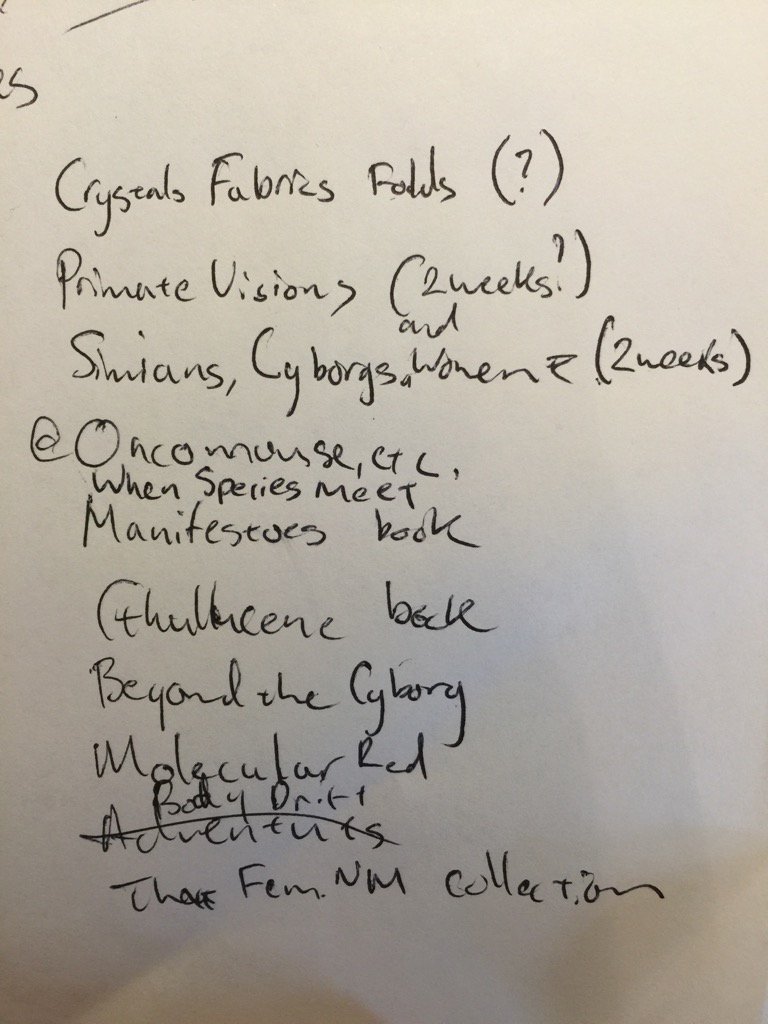 es
Crystals Fabrics Folds (?)
Primate Visions (2 weeks?)
and
Simians, Cyborgs, Women (2 weeks)
@ Oncomouse, etc.
When Species Meet
Manifestoes book
Cthulhucene book
Beyond the Cyborg
Molecular Red
Body Drift
Adventures
That Fem. NM collection